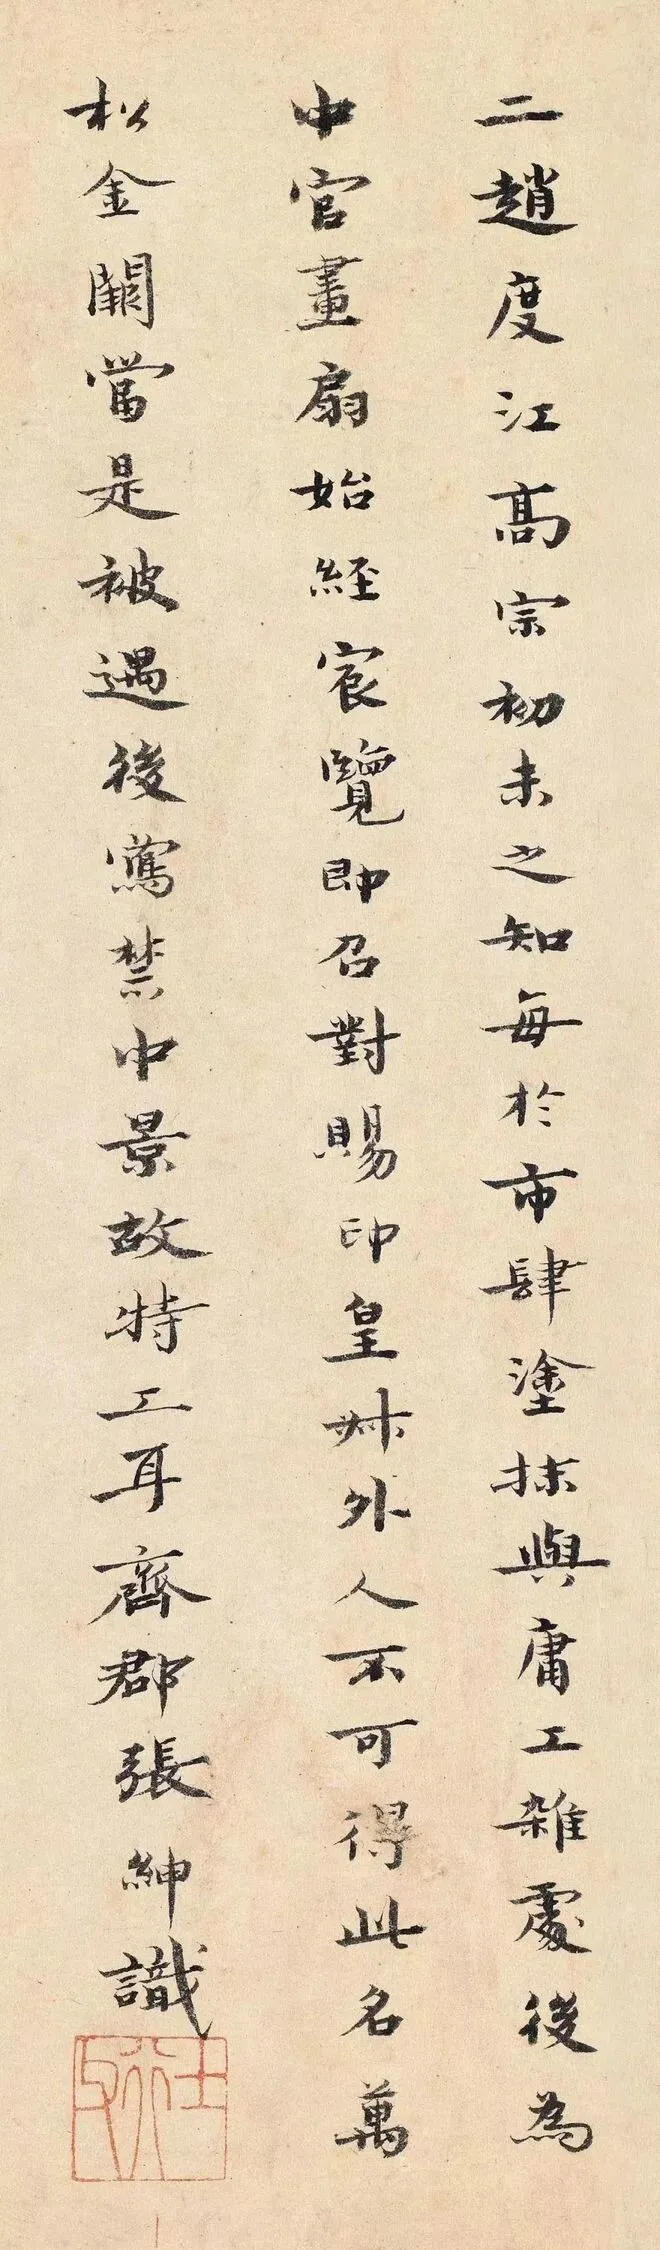 二趙度江高宗初未之知每於市肆塗抹與庸工雜處後為
中官畫扇始經宸覽即召對賜印皇妹外人不可得此名萬
松金闕當是被遇後寫禁中景故特工耳齊郡張紳識
士行